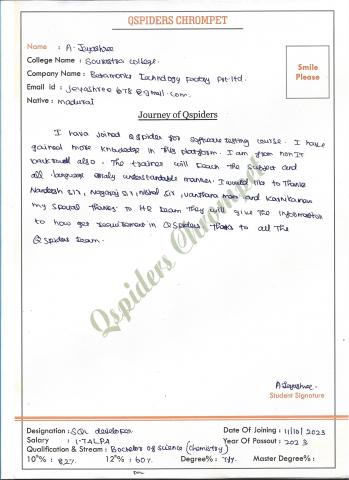 QSPIDERS CHROMPET
Name : A. Jayashree
College Name : Sourastra college.
Company Name : Technology Factory Pvt.ltd.
Email Id : jayashree678@gmail.com.
Native : madurai
Smile
Please
Journey of Qspiders
I have joined qspider for software testing course. I have
gained more knowledge in this platform. I am from non IT
also. The trainer will teach the subject and
all language easly understandable manner. I would like to thank
sir, Nagaraj sir, nikhil sir, mam and
my special thanks to HR team they will give the information
to how get requirement in QSpiders. Thanks to all the
QSpiders team.
Qspiders Chrompet
A. Jayashree.
Student Signature
Designation : SQL developer
Date Of Joining : 11/10/2023
Salary : 1.74LPA
Year Of Passout : 2023
Qualification & Stream : Bachelor of science (chemistry)
10th% : 82% 12th% : 60% Degree% : 74% Master Degree% :